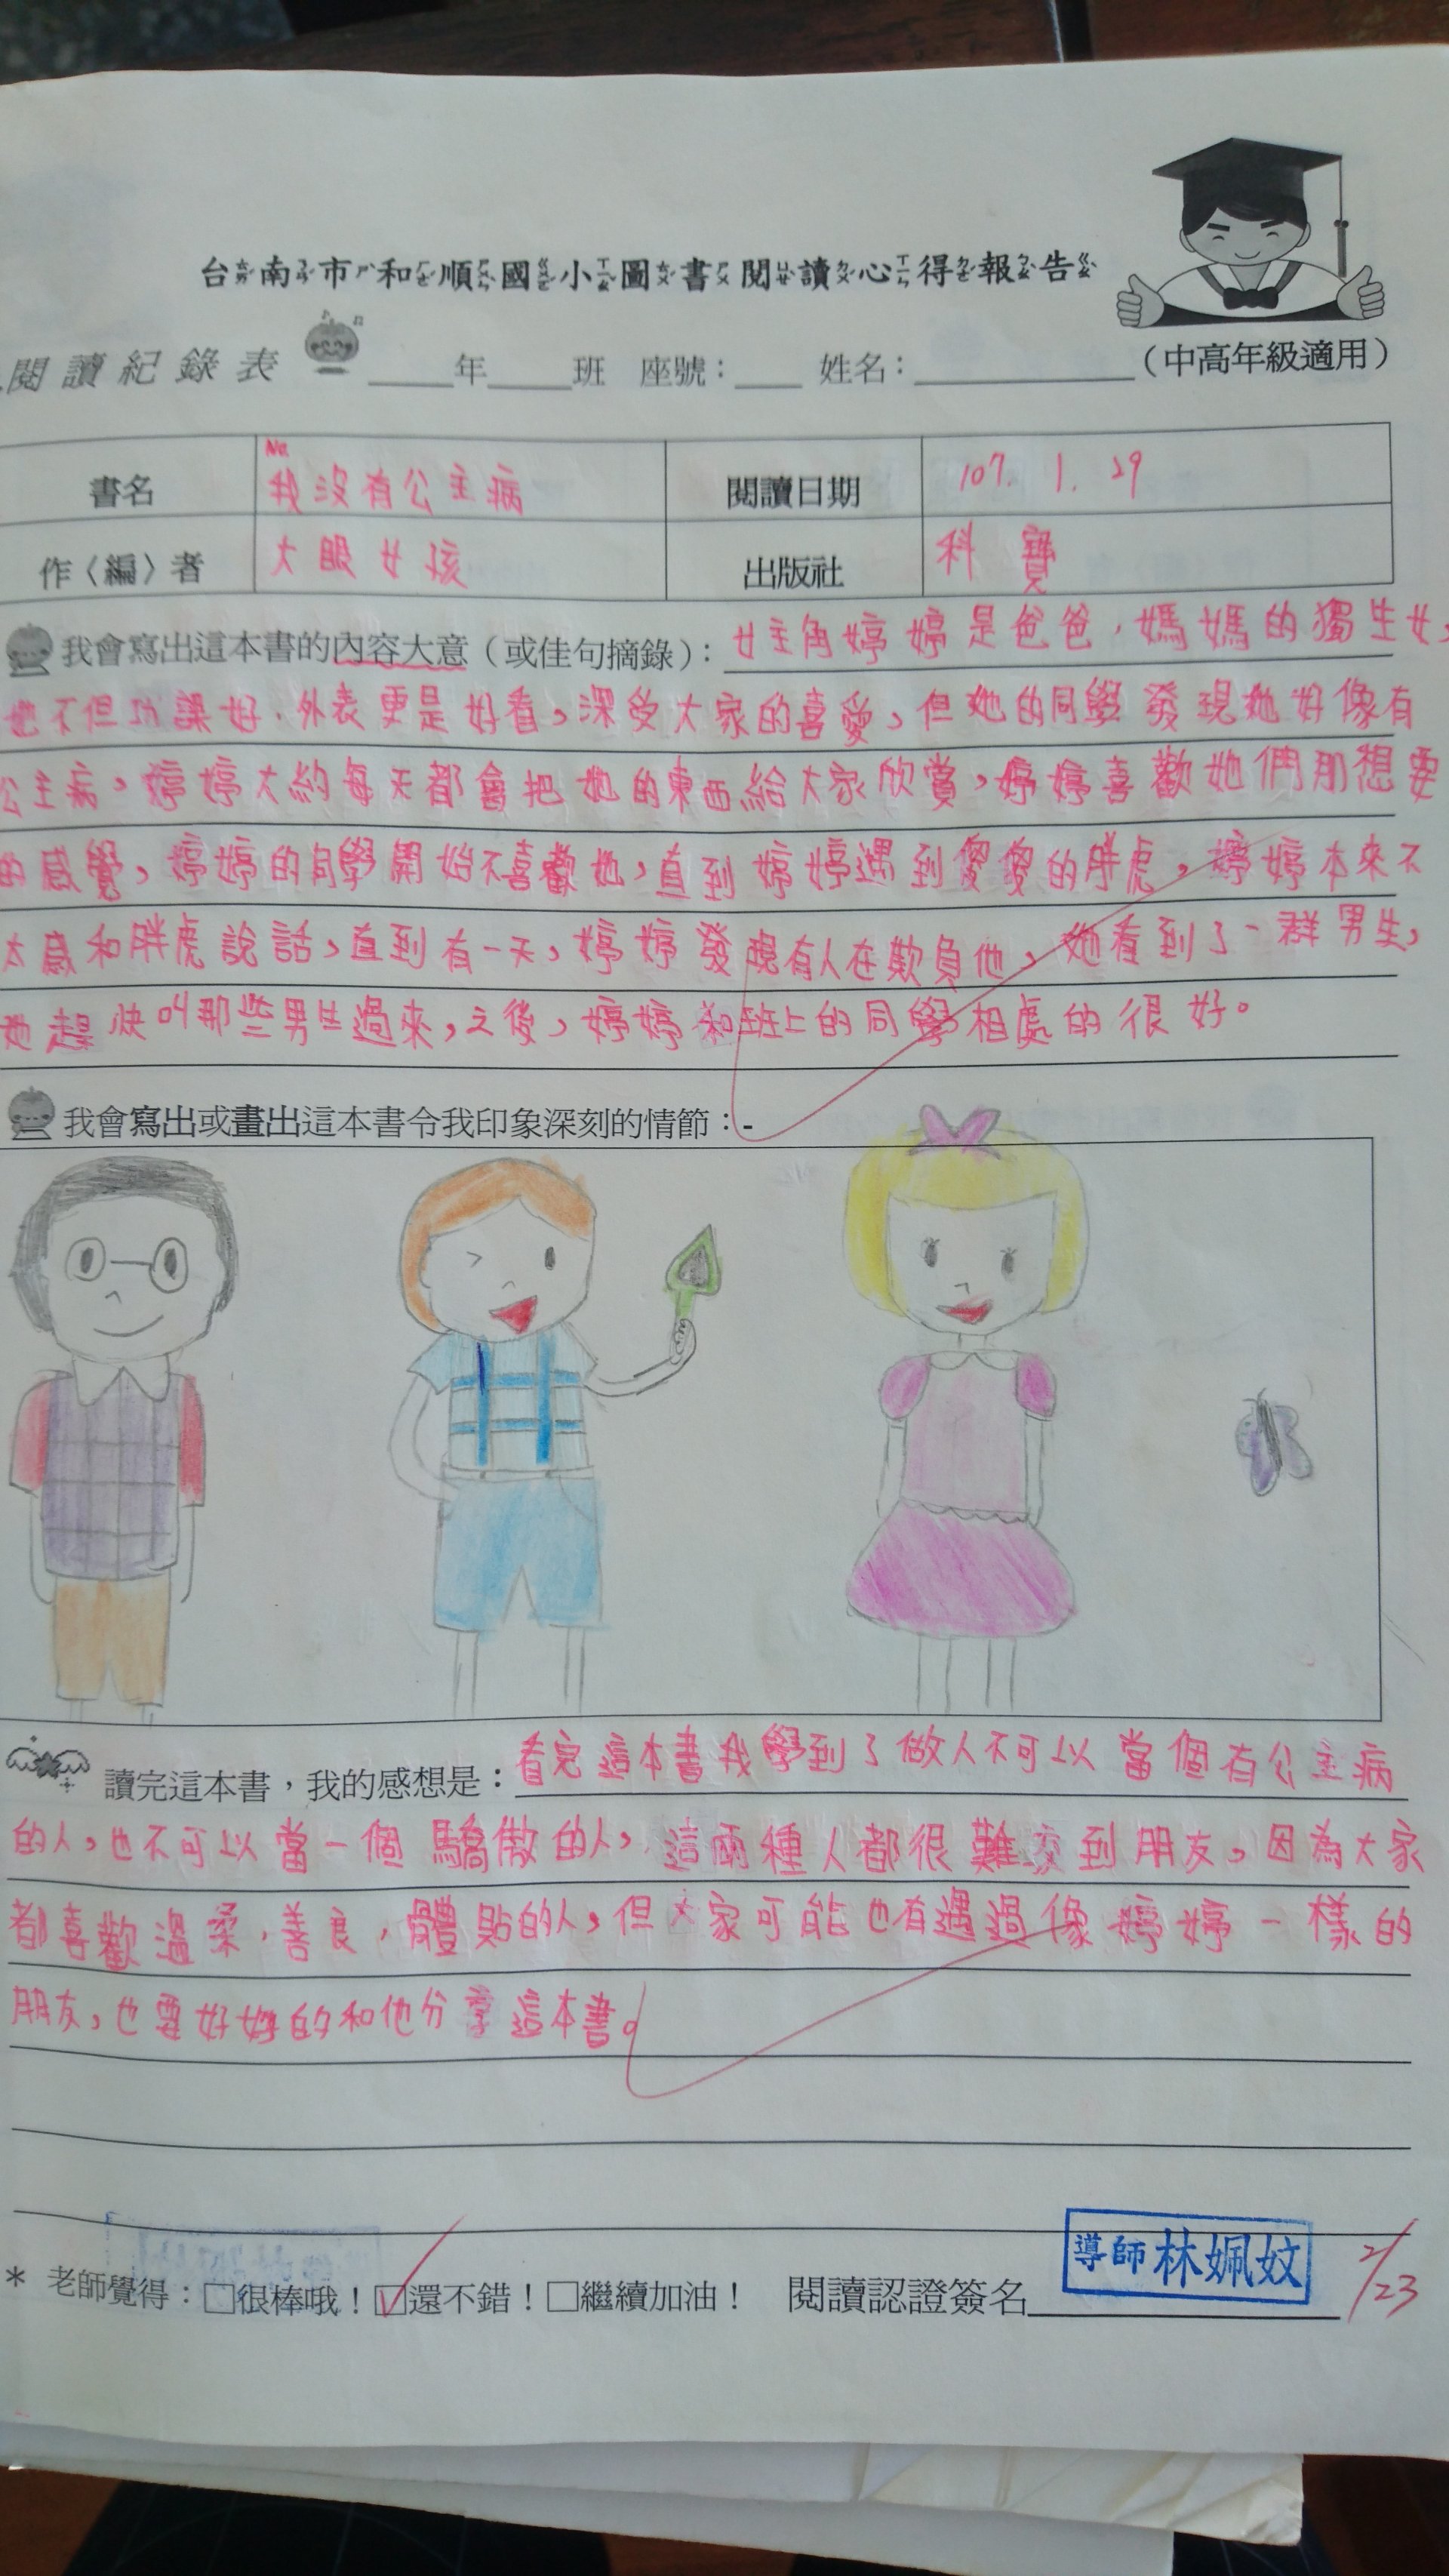 台南市和順國小圖書閱讀心得報告
閱讀紀錄表 ____年____班 座號：____ 姓名：____________ （中高年級適用）
書名 我沒有公主病 閱讀日期 107. 1. 29
No.
作〈編〉者 大眼女孩 出版社 科寶
我會寫出這本書的內容大意（或佳句摘錄）：女主角婷婷是爸爸，媽媽的獨生女，
她不但功課好，外表更是好看，深受大家的喜愛，但她的同學發現她好像有
公主病，婷婷大約每天都會把她的東西給大家欣賞，婷婷喜歡她們那想要
的感覺，婷婷的同學開始不喜歡她，直到婷婷遇到傻傻的胖虎，婷婷本來不
太感和胖虎說話，直到有一天，婷婷發現有人在欺負他，她看到了一群男生，
她趕快叫那些男生過來，之後，婷婷和班上的同學相處的很好。
我會寫出或畫出這本書令我印象深刻的情節：-
讀完這本書，我的感想是：看完這本書我學到了做人不可以當個有公主病
的人，也不可以當一個驕傲的人，這兩種人都很難交到朋友，因為大家
都喜歡溫柔，善良，體貼的人，但大家可能也有遇過像婷婷一樣的
朋友，也要好好的和他分享這本書。
* 老師覺得：□很棒哦！☑還不錯！□繼續加油！ 閱讀認證簽名 導師 林姵妏 2/23